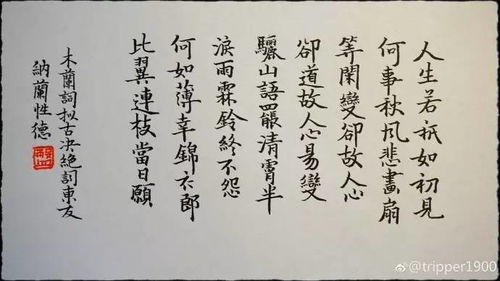 人生若祇如初見
何事秋風悲畫扇
等閑變卻故人心
卻道故人心易變
驪山語罷清霄半
淚雨霖鈴終不怨
何如薄幸錦衣郎
比翼連枝當日願
木蘭詞拟古決絕詞柬友
納蘭性德
@tripper1900